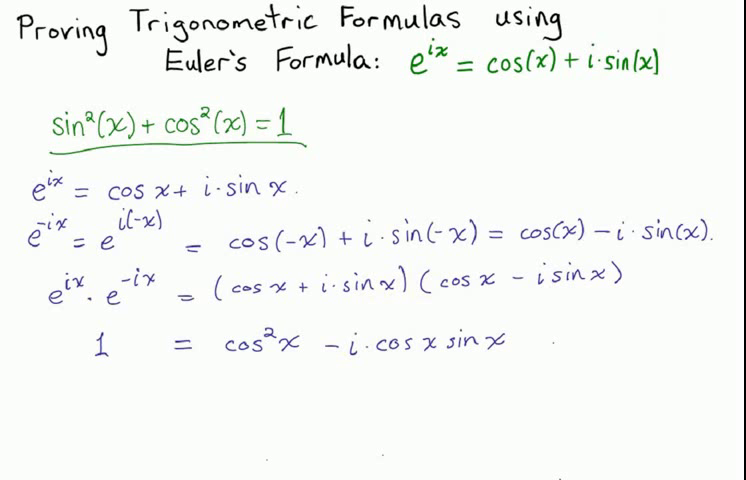 Proving Trigonometric Formulas using
Euler's Formula: e^{ix} = cos(x) + i·sin(x)
sin²(x) + cos²(x) = 1
e^{ix} = cos x + i·sin x.
e^{-ix} = e^{i(-x)} = cos(-x) + i·sin(-x) = cos(x) - i·sin(x).
e^{ix}·e^{-ix} = (cos x + i·sin x)(cos x - i sin x)
1 = cos²x - i·cos x sin x